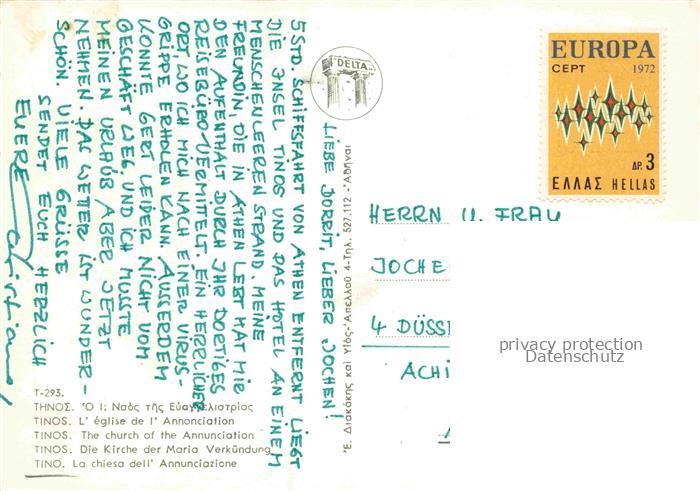 LIEBE DORRIT, LIEBER JOCHEN!
5 STD. SCHIFFSFAHRT VON ATHEN ENTFERNT LIEGT
DIE INSEL TINOS UND DAS HOTEL AN EINEM
MENSCHENLEEREN STRAND. MEINE
FREUNDIN, DIE IN ATHEN LEBT HAT MIR
DEN AUFENTHALT DURCH IHR DORTIGES
REISEBÜRO VERMITTELT. EIN HERRLICHER
ORT, WO ICH MICH NACH EINER VIRUS-
GRIPPE ERHOLEN KANN. AUSSERDEM
KONNTE GERT LEIDER NICHT VOM
GESCHÄFT WEG, UND ICH MUSSTE
MEINEN URLAUB ABER JETZT
NEHMEN. DAS WETTER IST WUNDER-
SCHÖN. VIELE GRÜSSE
SENDET EUCH HERZLICH
EUERE
Christiane
T-293.
ΤΗΝΟΣ. Ὁ Ἱ: Ναὸς τῆς Εὐαγγελιστρίας
TINOS. L' église de l' Annonciation
TINOS. The church of the Annunciation
TINOS. Die Kirche der Maria Verkündung
TINO. La chiesa dell' Annunciazione
DELTA
Ἐ. Διακάκης καὶ Υἱὸς-Ἀπελλοῦ 4-Τηλ. 527.112 - Ἀθῆναι
EUROPA
CEPT 1972
ΔΡ. 3
ΕΛΛΑΣ HELLAS
HERRN U. FRAU
JOCHE
4 DÜSS
ACHI
privacy protection
Datenschutz